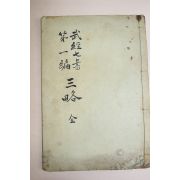 武經七書
第一編 三略 全